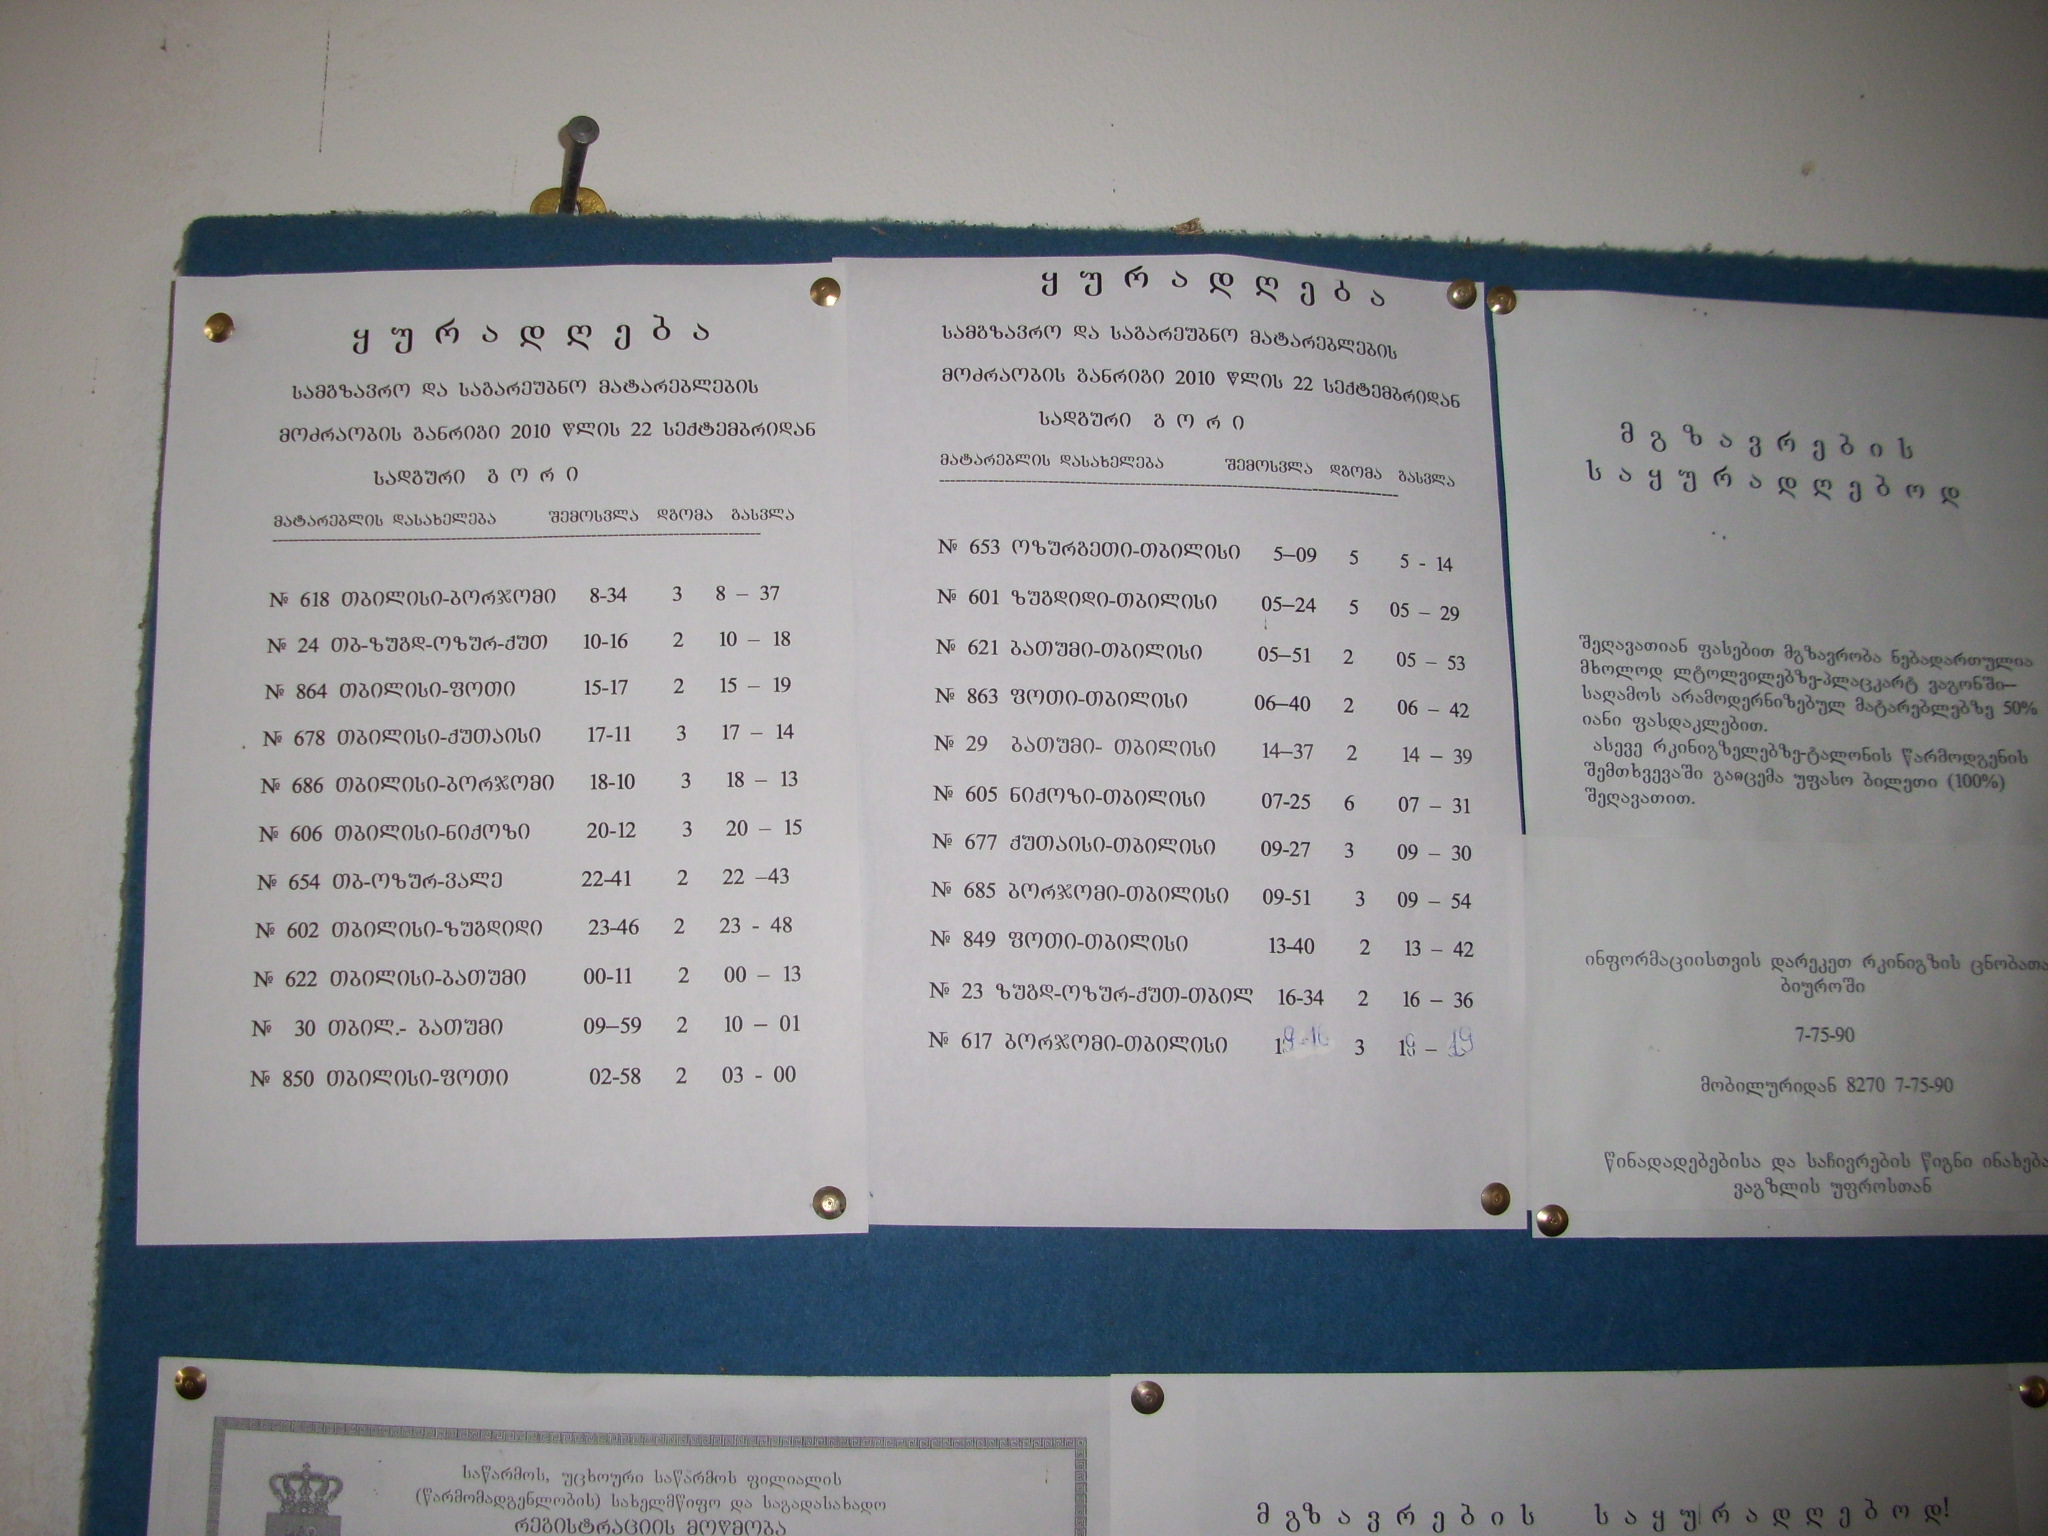 ყურადღება
სამგზავრო და საგარეუბნო მატარებლების
მოძრაობის განრიგი 2010 წლის 22 სექტემბრიდან
სადგური გორი
მატარებლის დასახელება შემოსვლა დგომა გასვლა
№ 618 თბილისი-ბორჯომი 8-34 3 8 – 37
№ 24 თბ-ზუგდ-ოზურ-ქუთ 10-16 2 10 – 18
№ 864 თბილისი-ფოთი 15-17 2 15 – 19
№ 678 თბილისი-ქუთაისი 17-11 3 17 – 14
№ 686 თბილისი-ბორჯომი 18-10 3 18 – 13
№ 606 თბილისი-ნიქოზი 20-12 3 20 – 15
№ 654 თბ-ოზურ-ვალე 22-41 2 22 –43
№ 602 თბილისი-ზუგდიდი 23-46 2 23 - 48
№ 622 თბილისი-ბათუმი 00-11 2 00 – 13
№ 30 თბილ.- ბათუმი 09–59 2 10 – 01
№ 850 თბილისი-ფოთი 02-58 2 03 - 00
ყურადღება
სამგზავრო და საგარეუბნო მატარებლების
მოძრაობის განრიგი 2010 წლის 22 სექტემბრიდან
სადგური გორი
მატარებლის დასახელება შემოსვლა დგომა გასვლა
№ 653 ოზურგეთი-თბილისი 5–09 5 5 - 14
№ 601 ზუგდიდი-თბილისი 05–24 5 05 – 29
№ 621 ბათუმი-თბილისი 05–51 2 05 – 53
№ 863 ფოთი-თბილისი 06–40 2 06 – 42
№ 29 ბათუმი- თბილისი 14–37 2 14 – 39
№ 605 ნიქოზი-თბილისი 07-25 6 07 – 31
№ 677 ქუთაისი-თბილისი 09-27 3 09 – 30
№ 685 ბორჯომი-თბილისი 09-51 3 09 – 54
№ 849 ფოთი-თბილისი 13-40 2 13 – 42
№ 23 ზუგდ-ოზურ-ქუთ-თბილ 16-34 2 16 – 36
№ 617 ბორჯომი-თბილისი 3
მგზავრების
საყურადღებოდ
შეღავათიან ფასებით მგზავრობა ნებადართულია
მხოლოდ ლტოლვილებზე-პლაცკარტ ვაგონში–
საღამოს არამოდერნიზებულ მატარებლებზე 50%
იანი ფასდაკლებით.
ასევე რკინიგზელებზე-ტალონის წარმოდგენის
შემთხვევაში გაიცემა უფასო ბილეთი (100%)
შეღავათით.
ინფორმაციისთვის დარეკეთ რკინიგზის ცნობათა
ბიუროში
7-75-90
მობილურიდან 8270 7-75-90
წინადადებებისა და საჩივრების წიგნი ინახება
ვაგზლის უფროსთან
საწარმოს, უცხოური საწარმოს ფილიალის
(წარმომადგენლობის) სახელმწიფო და საგადასახადო
რეგისტრაციის მოწმობა
მგზავრების საყურადღებოდ!